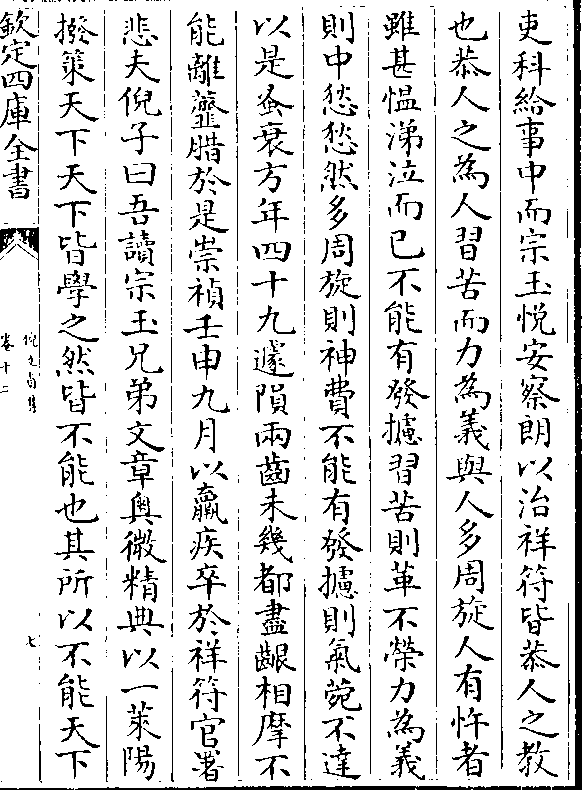 吏科給事中而宗玉悅安察朗以治祥符皆恭人之教
也恭人之為人習苦而力為義與人多周旋人有忤者
雖甚愠涕泣而已不能有發攄習苦則革不榮力為義
則中愁愁然多周旋則神費不能有發攄則氣菀不達
以是蚤衰方年四十九遽隕兩齒未幾都盡齦相摩不
能離虀腊於是崇禎壬申九月以羸疾卒於祥符官署
悲夫倪子曰吾讀宗玉兄弟文章奥微精典以一萊陽
撥策天下天下皆學之然皆不能也其所以不能天下
欽定四庫全書
倪文貞集
卷十二
七